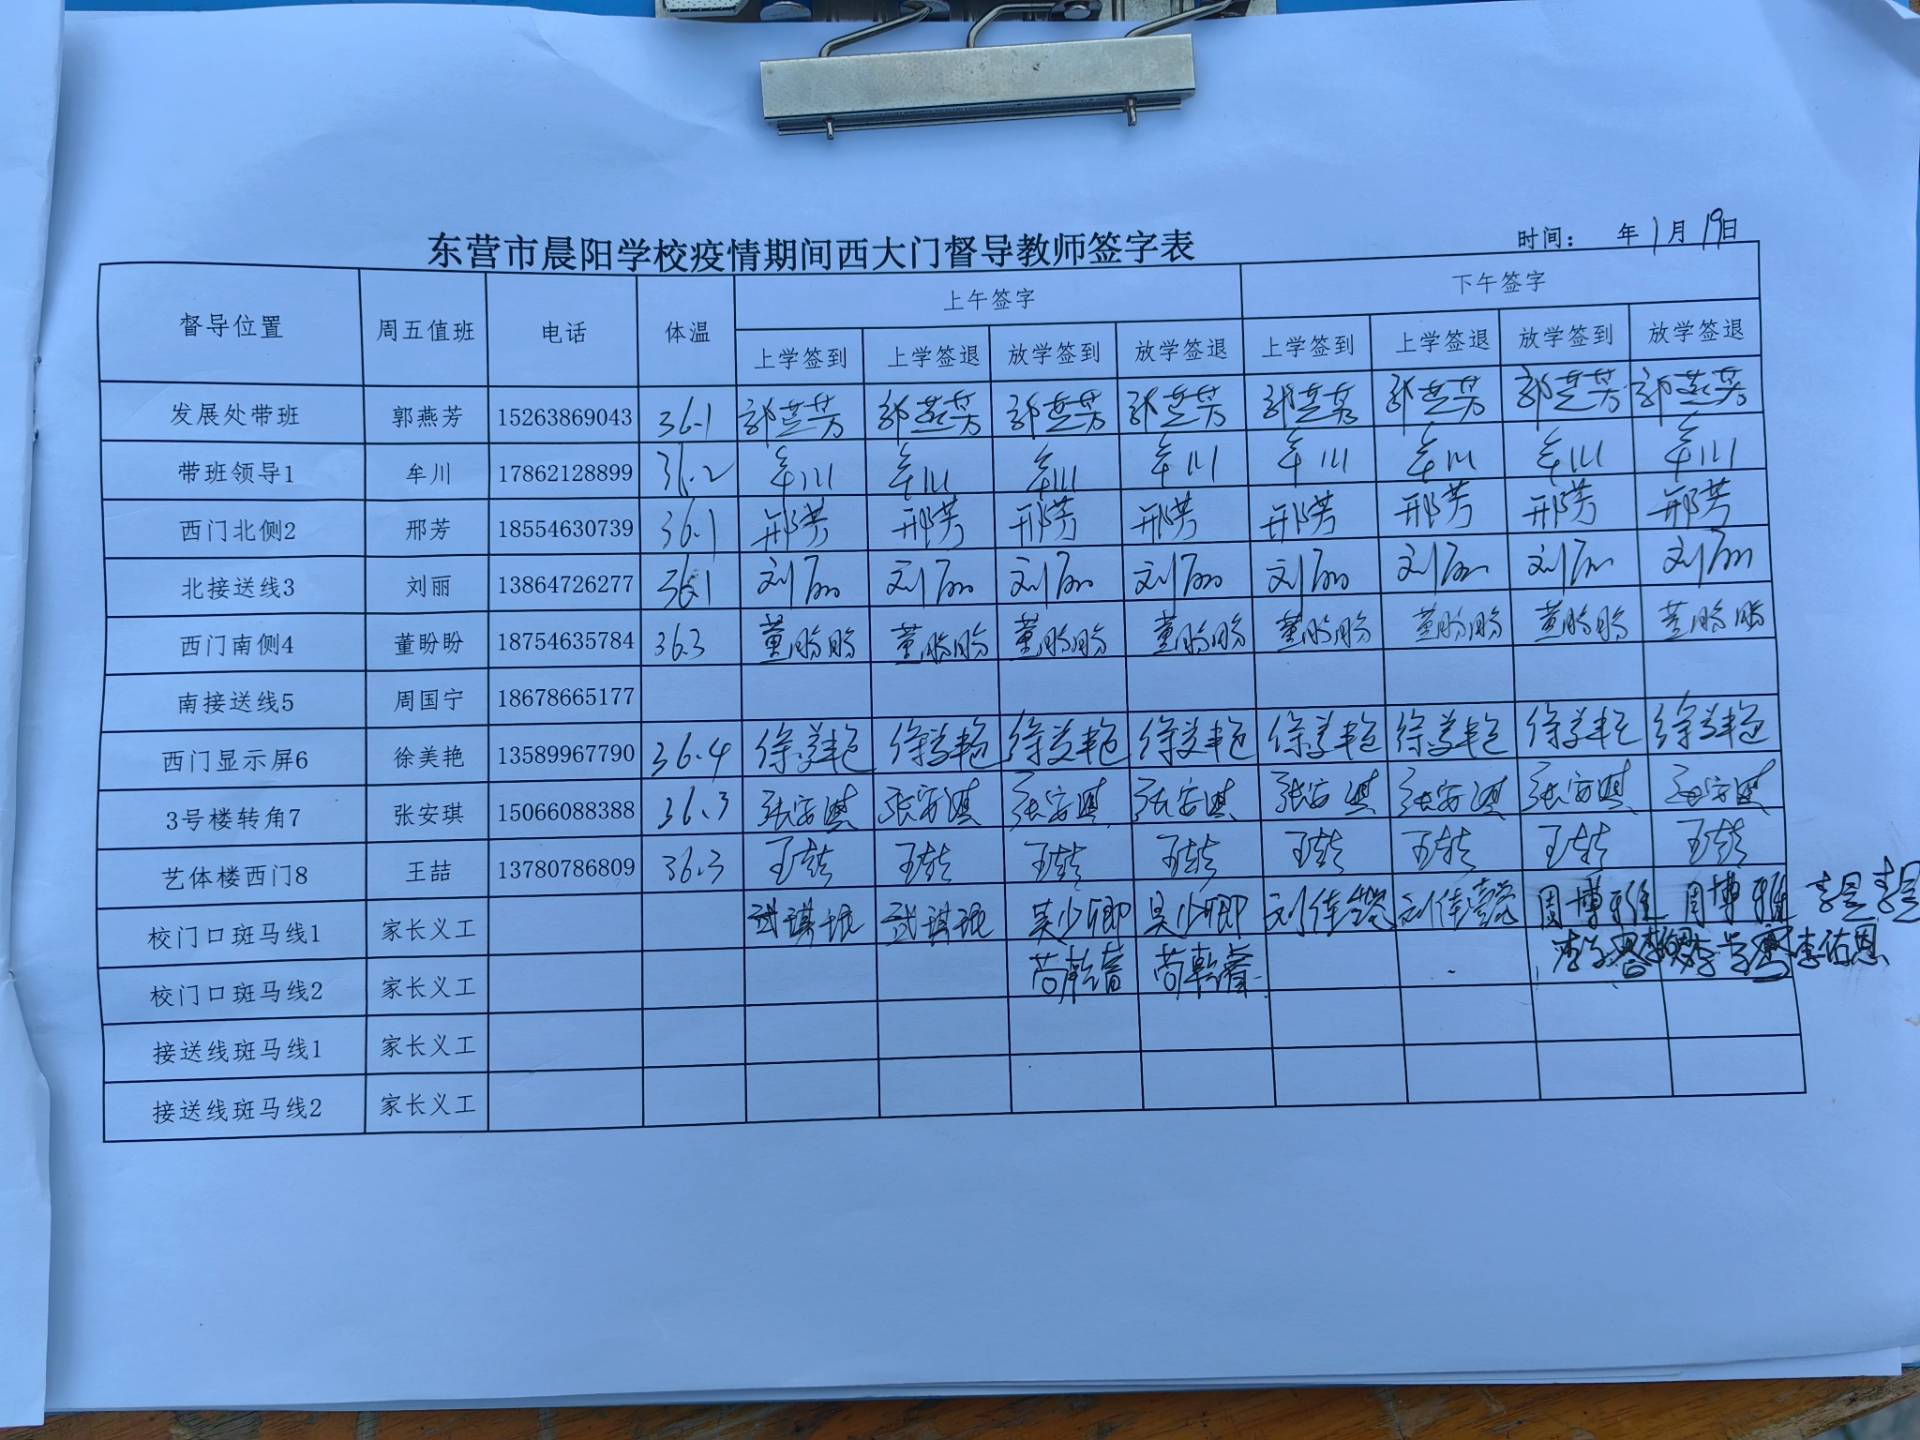 东营市晨阳学校疫情期间西大门督导教师签字表
时间： 年1月19日
督导位置 周五值班 电话 体温 上午签字 下午签字
上学签到 上学签退 放学签到 放学签退 上学签到 上学签退 放学签到 放学签退
发展处带班 郭燕芳 15263869043 36.1 郭燕芳 郭燕芳 郭燕芳 郭燕芳 郭燕芳 郭燕芳 郭燕芳 郭燕芳
带班领导1 牟川 17862128899 36.2 牟川 牟川 牟川 牟川 牟川 牟川 牟川 牟川
西门北侧2 邢芳 18554630739 36.1 邢芳 邢芳 邢芳 邢芳 邢芳 邢芳 邢芳 邢芳
北接送线3 刘丽 13864726277 36.1 刘丽 刘丽 刘丽 刘丽 刘丽 刘丽 刘丽 刘丽
西门南侧4 董盼盼 18754635784 36.3 董盼盼 董盼盼 董盼盼 董盼盼 董盼盼 董盼盼 董盼盼 董盼盼
南接送线5 周国宁 18678665177
西门显示屏6 徐美艳 13589967790 36.4 徐美艳 徐美艳 徐美艳 徐美艳 徐美艳 徐美艳 徐美艳 徐美艳
3号楼转角7 张安琪 15066088388 36.3 张安琪 张安琪 张安琪 张安琪 张安琪 张安琪 张安琪 张安琪
艺体楼西门8 王喆 13780786809 36.3 王喆 王喆 王喆 王喆 王喆 王喆 王喆 王喆
校门口斑马线1 家长义工 吴少卿 吴少卿 周博雅 周博雅
校门口斑马线2 家长义工 李佑恩
接送线斑马线1 家长义工
接送线斑马线2 家长义工